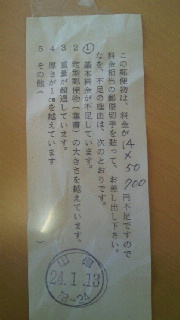 この郵便物は、料金が 14×50 700 円不足ですので
料金相当の郵便切手を貼って、お差し出し下さい。
なお、不足の理由は、次のとおりです。
① 基本料金が不足しています。
2 定形郵便物(葉書)の大きさを越えています。
3 重量が超過しています。
4 厚さが1cmを越えています
5 その他(
24.1.13